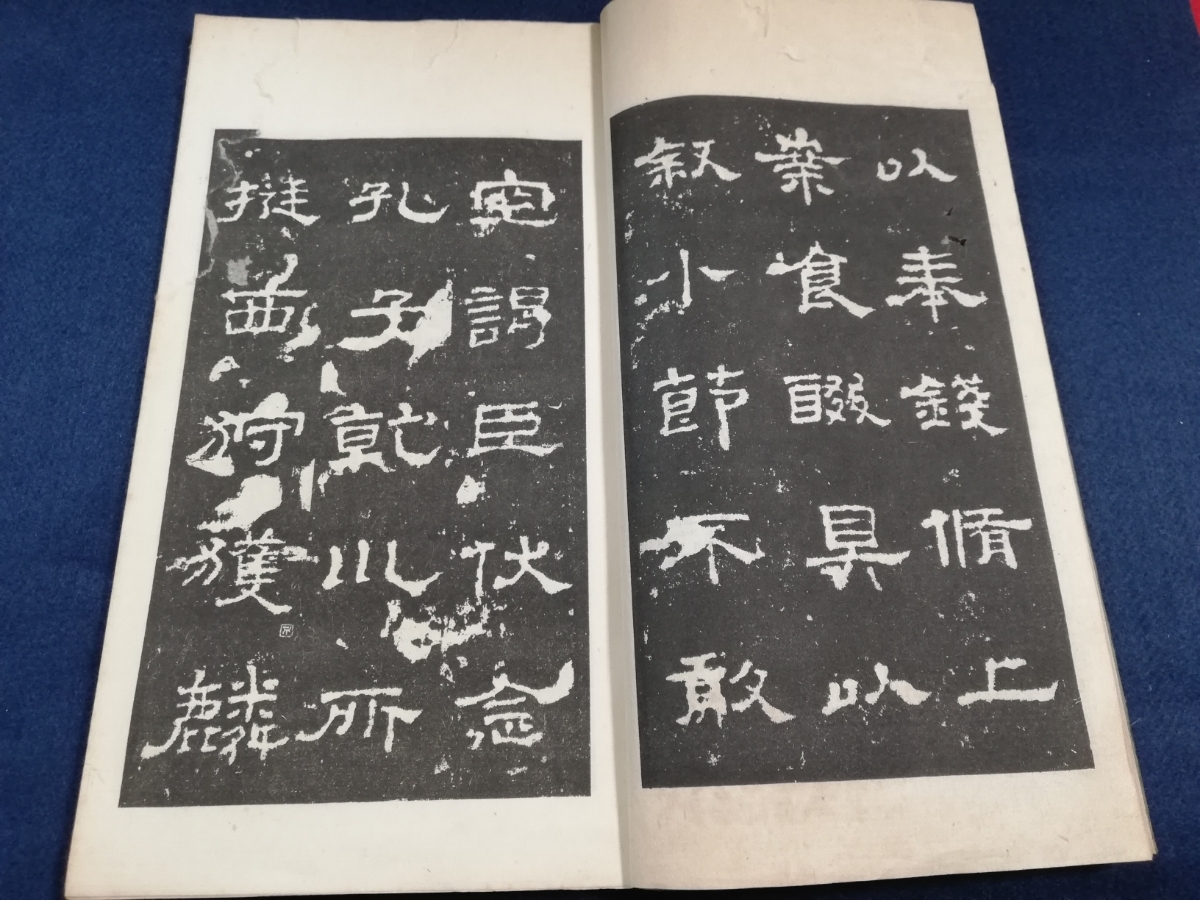 以奉錢脩上
案食醊具以
叙小節不敢
空謁臣伏念
孔子乾川所
挺西狩獲麟